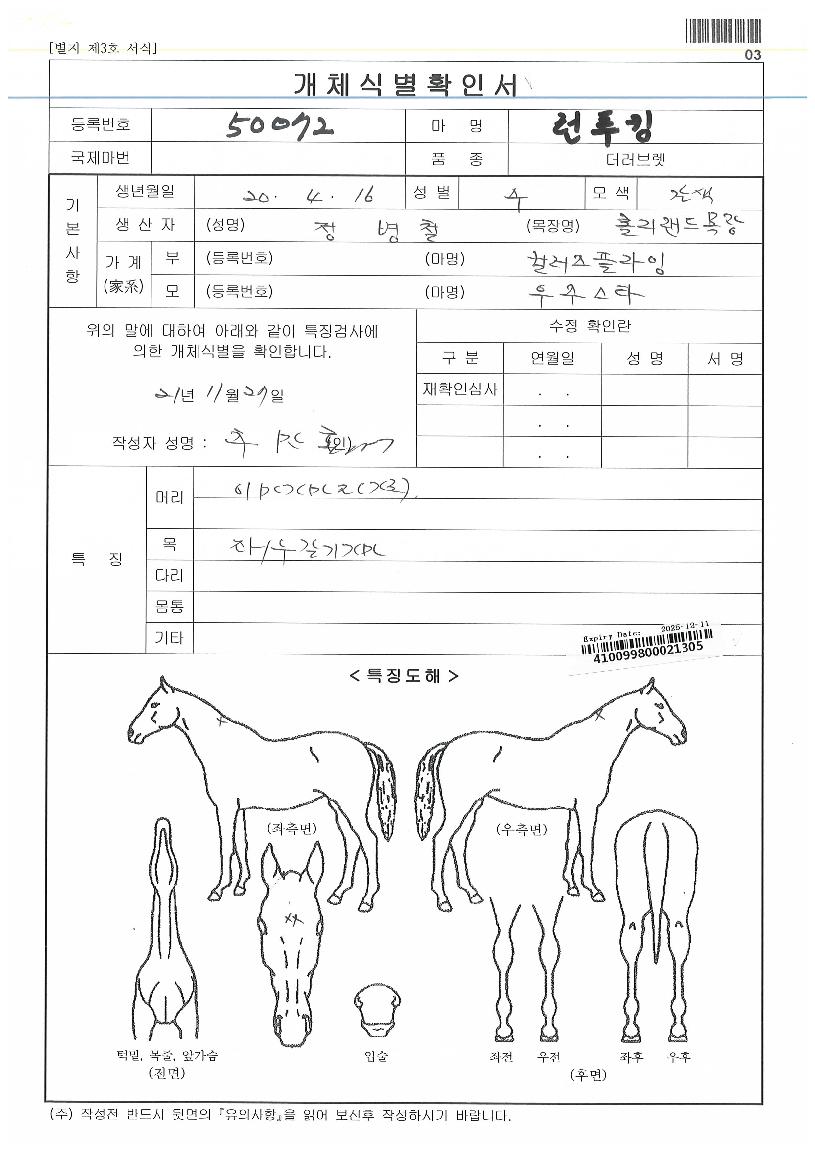 [별지 제3호 서식]
03
개체식별확인서
등록번호 50072 마 명 런투킹
국제마번 품 종 더러브렛
기본사항
생년월일 20. 4. 16 성별 수 모색 갈색
생산자 (성명) 정병철 (목장명) 클리랜드목장
가계 (家系) 부 (등록번호) (마명) 컬러즈플라잉
모 (등록번호) (마명) 우주스타
위의 말에 대하여 아래와 같이 특징검사에
의한 개체식별을 확인합니다.
21년 11월 27일
작성자 성명 : (인)
수정 확인란
구분 연월일 성명 서명
재확인심사 . .
. .
. .
특 징
머리
목 좌/우갈기가마
다리
몸통
기타
Expiry Date: 2025-12-11
410099800021305
< 특징도해 >
(좌측면) (우측면)
턱밑, 목줄, 앞가슴 입술 좌전 우전 좌후 우후
(전면) (후면)
(수) 작성전 반드시 뒷면의 『유의사항』을 읽어 보신후 작성하시기 바랍니다.